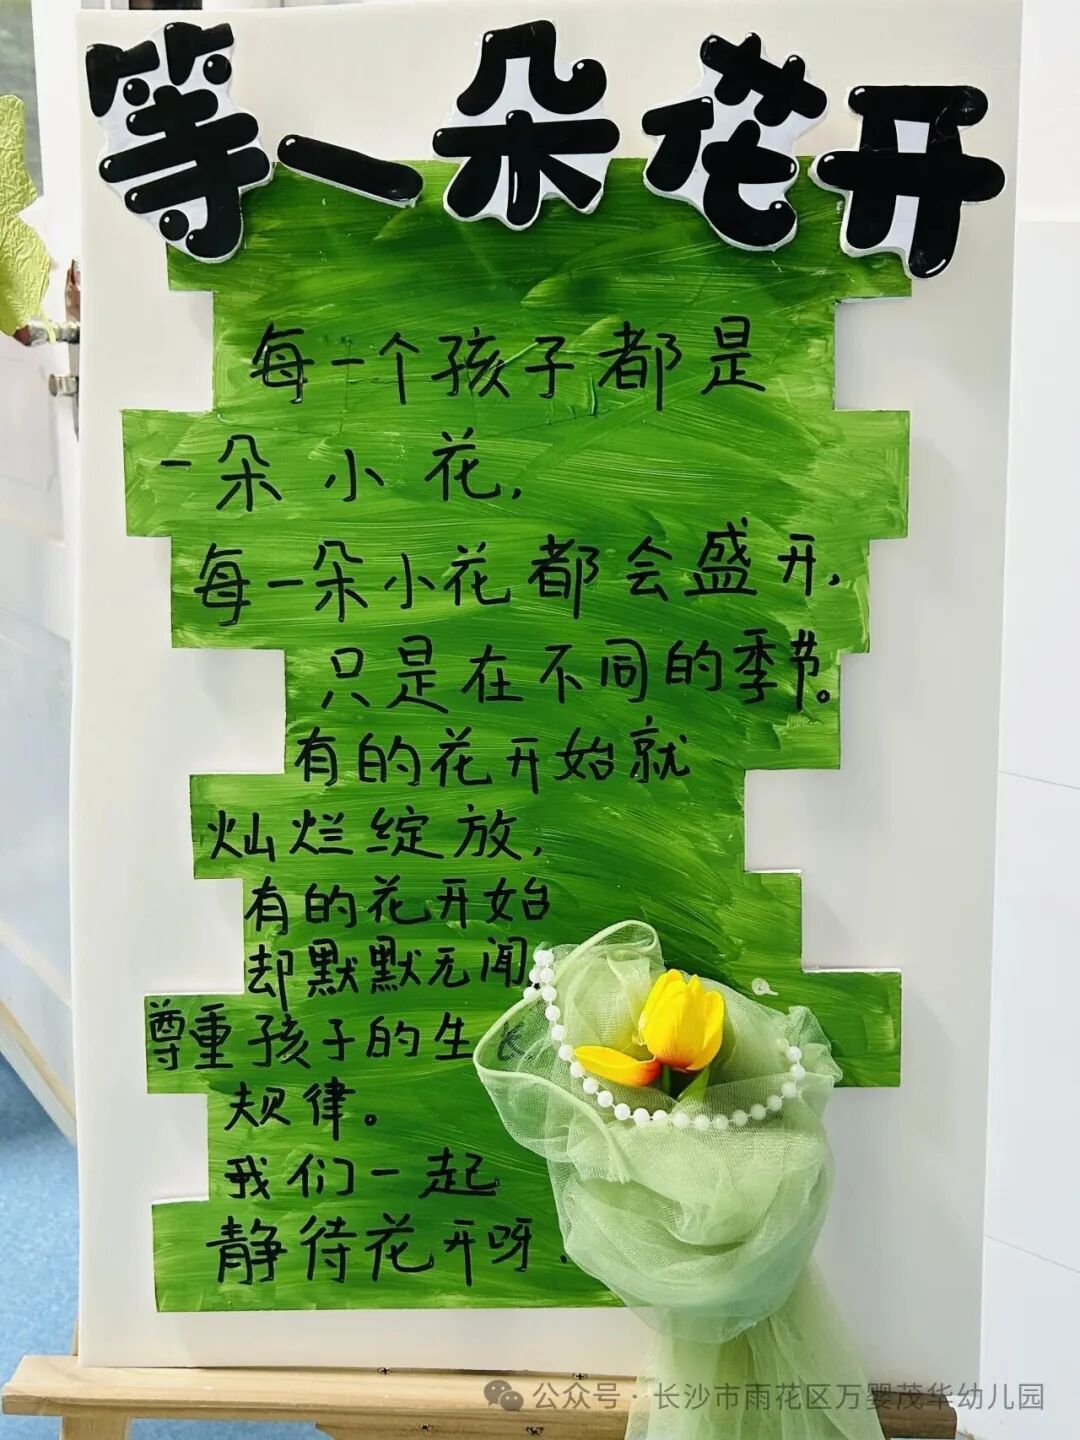 等一朵花开
每一个孩子都是
一朵小花,
每一朵小花都会盛开,
只是在不同的季节。
有的花开始就
灿烂绽放,
有的花开始
却默默无闻
尊重孩子的生长
规律。
我们一起
静待花开呀.
公众号·长沙市雨花区万婴茂华幼儿园